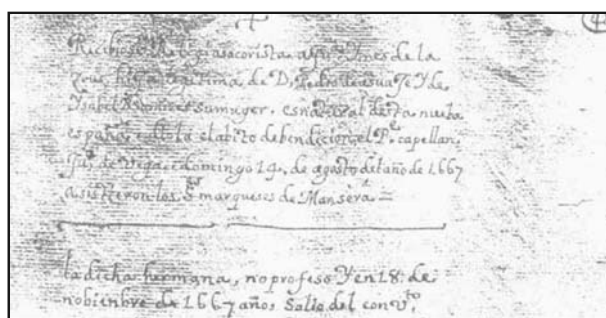 Recibiose Religiosa corista a Juª Ynes de la
Cruz, hija legitima, de D. Pedro de asuaje Y de
Ysabel Ramirez su muger, es natural desta nueba
españa, diole el abito de bendicion, el P.e capellan,
Juº. de Vega, domingo 14. de agosto del año de 1667
asistieron los S.res marqueses de Mansera =
la dicha hermana, no profeso Y en 18 de
nobienbre de 1667 años, Salio del convto